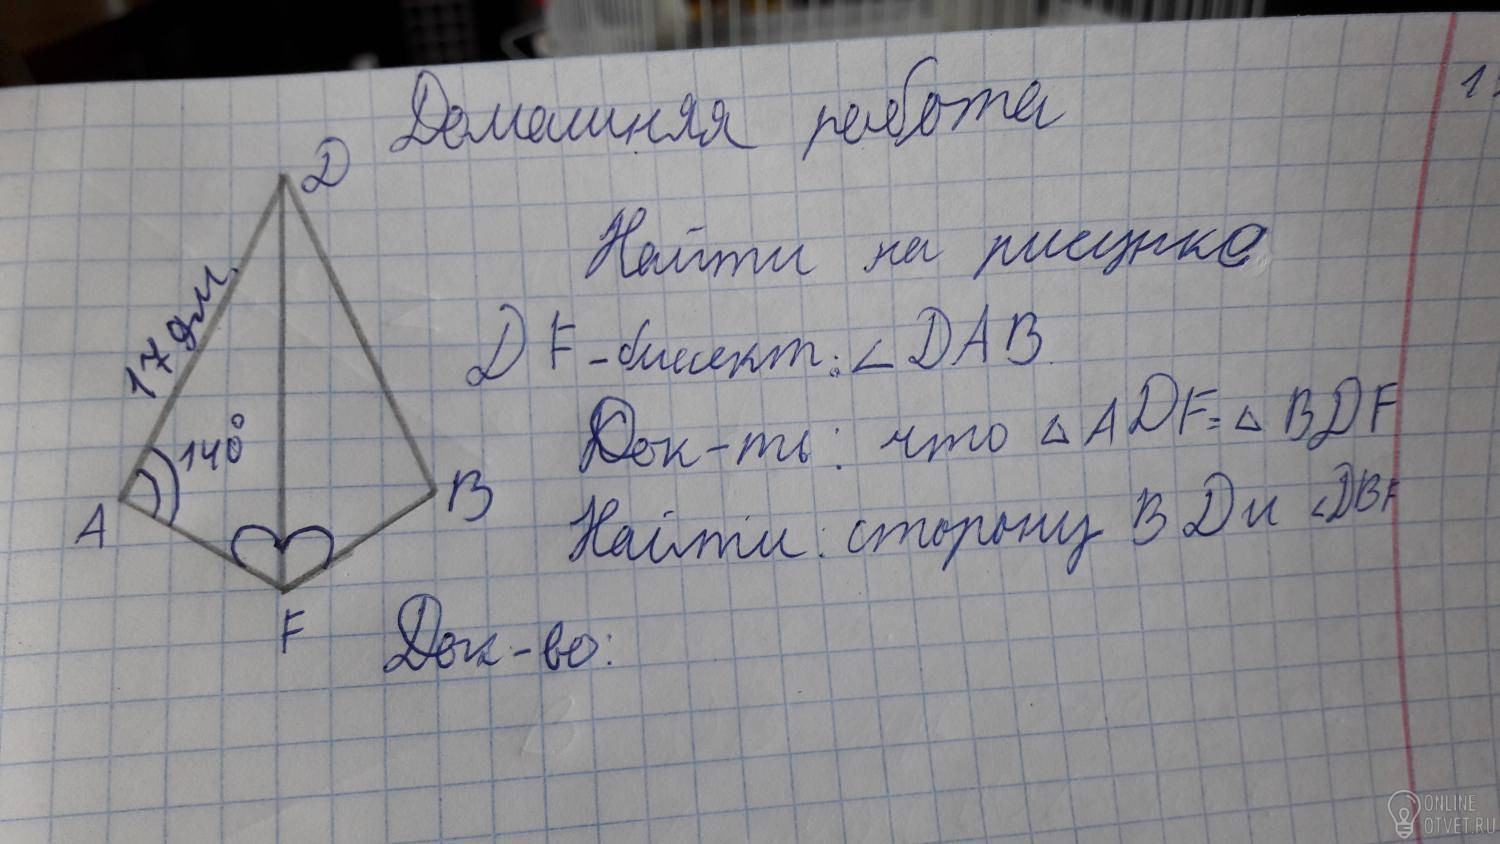 Домашняя работа
D
Найти на рисунке
17 дм
DF - биссект: ∠DAB
140°
Док-ть: что △ADF = △BDF
A
B
Найти: сторону BD и ∠DBF
F
Док-во:
ONLINE
OTVET.RU